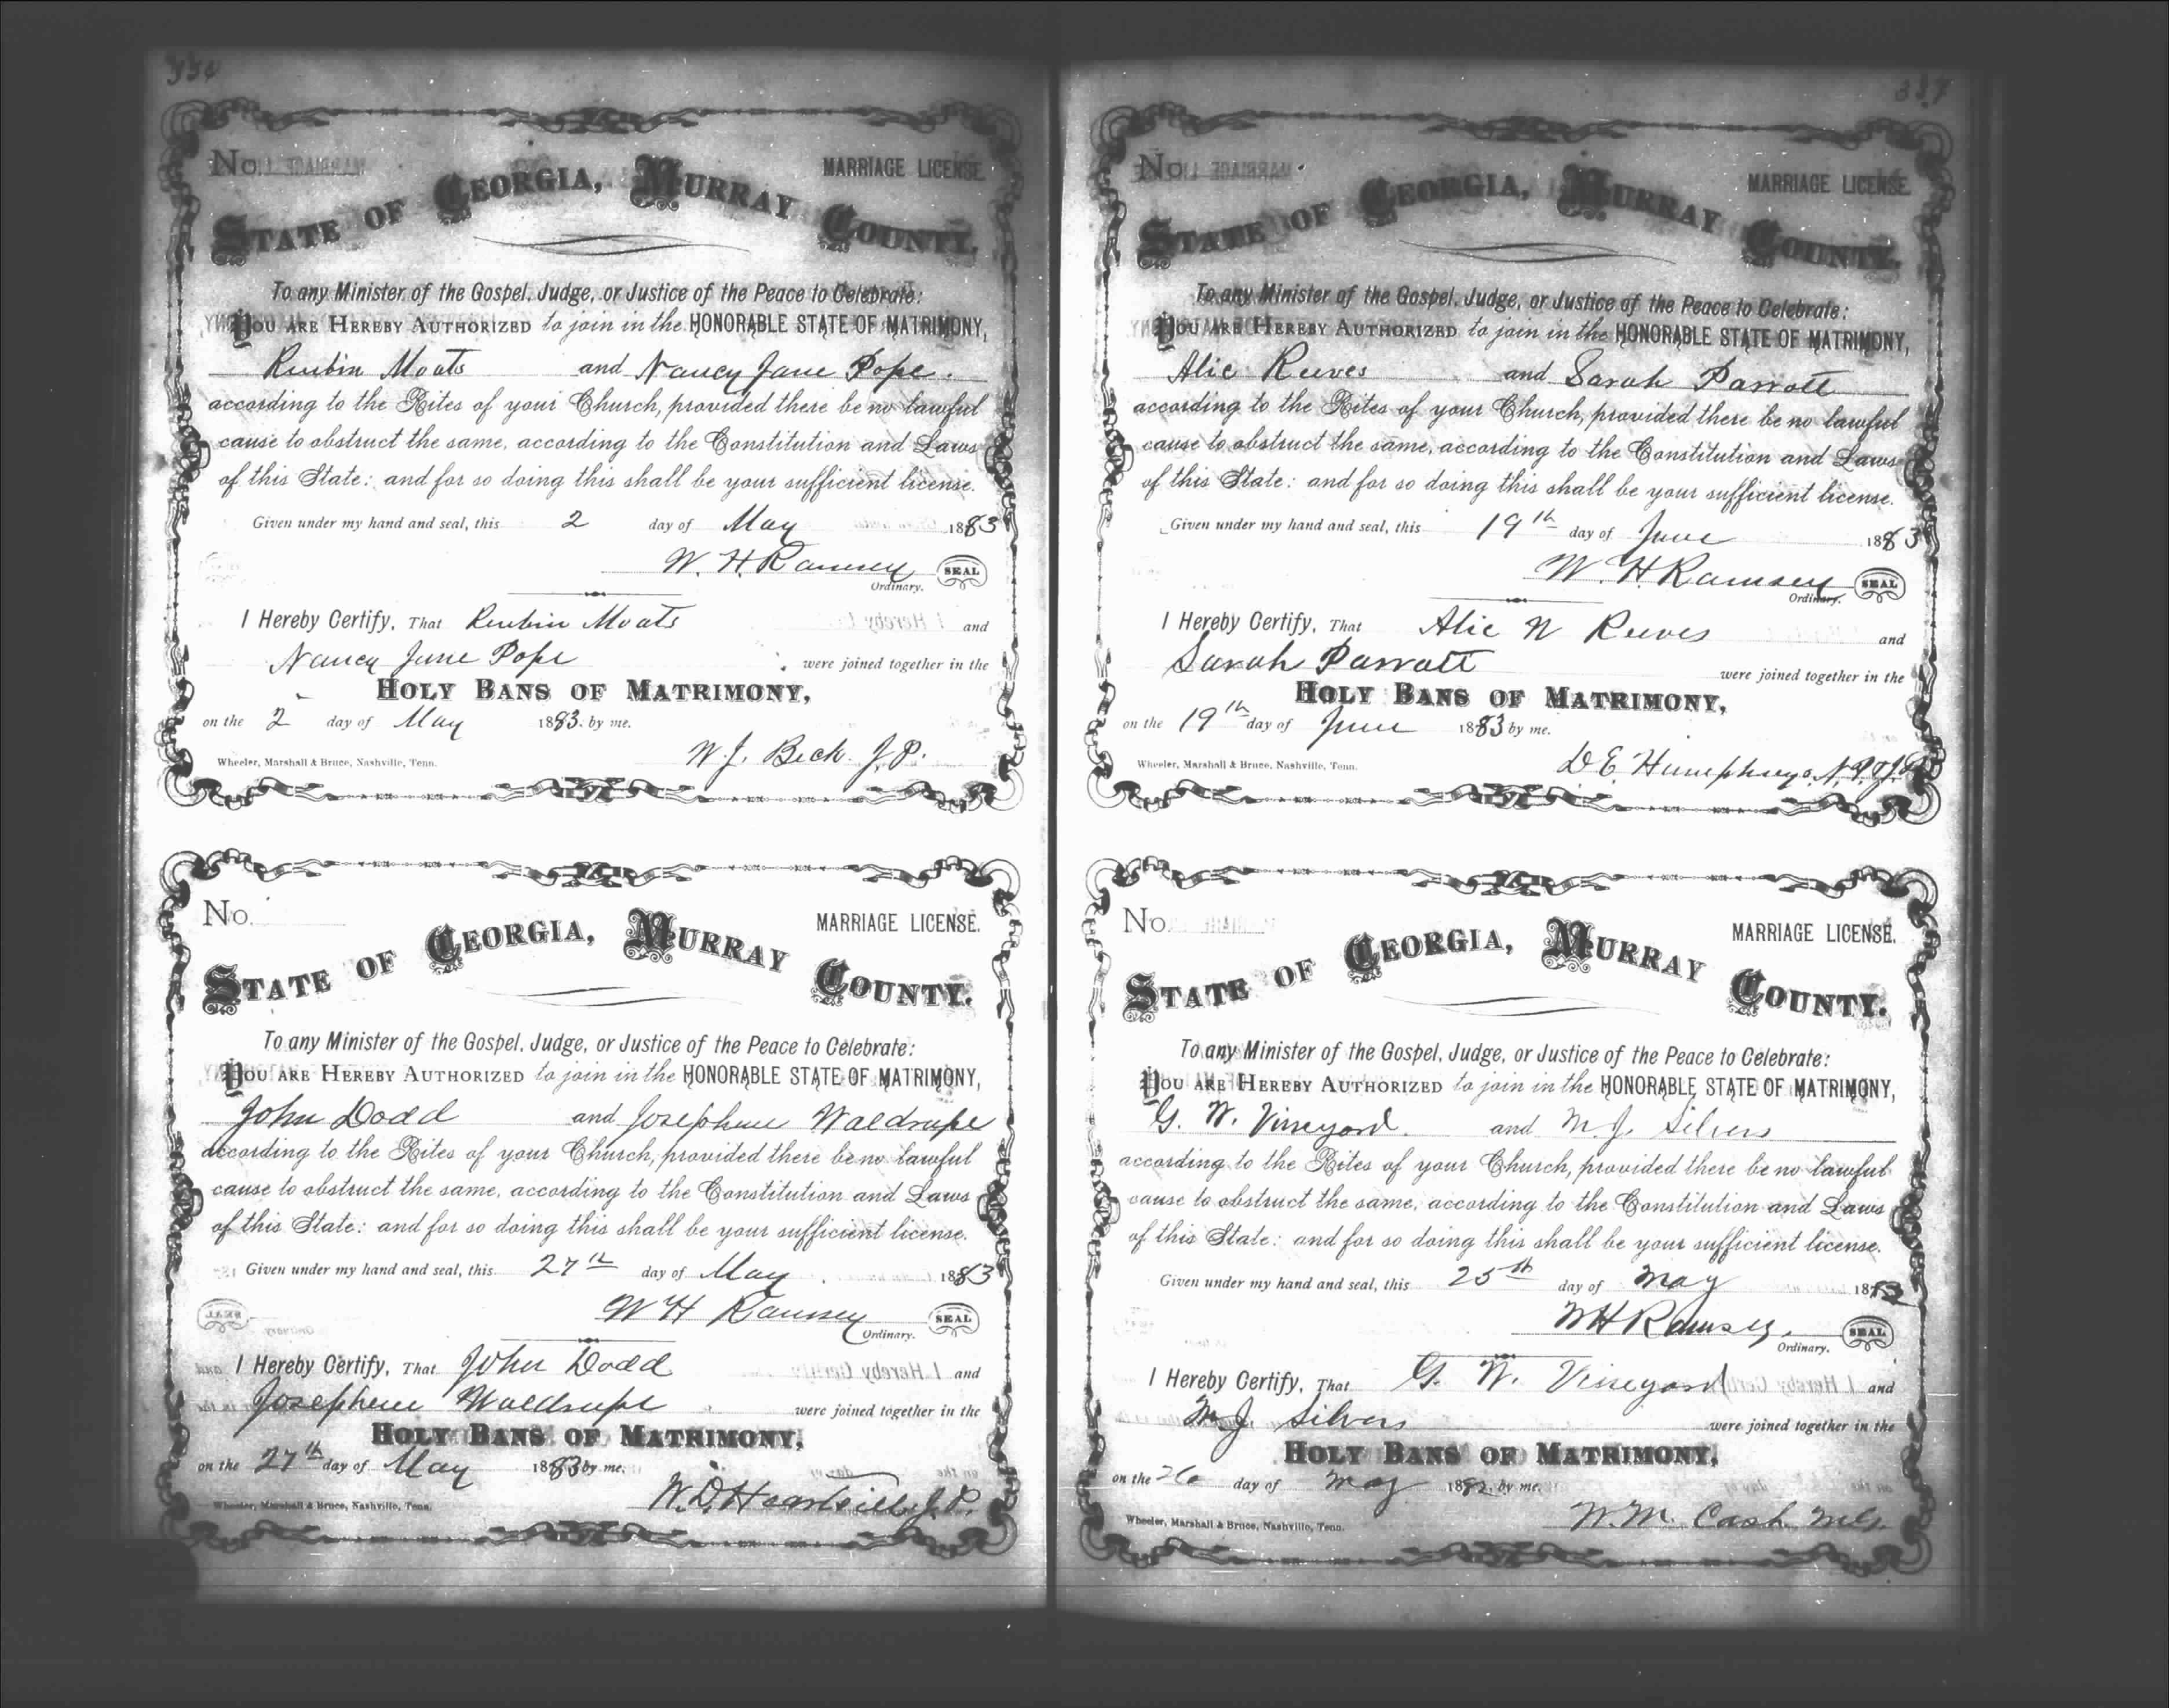 No.
MARRIAGE LICENSE.
STATE OF GEORGIA, MURRAY COUNTY.
To any Minister of the Gospel, Judge, or Justice of the Peace to Celebrate:
YOU ARE HEREBY AUTHORIZED to join in the HONORABLE STATE OF MATRIMONY,
Reubin Moats and Nancy Jane Pope.
according to the Rites of your Church, provided there be no lawful
cause to obstruct the same, according to the Constitution and Laws
of this State: and for so doing this shall be your sufficient license.
Given under my hand and seal, this 2 day of May 1883
W. H. Ramsey SEAL
Ordinary.
I Hereby Certify, That Reubin Moats and
Nancy Jane Pope were joined together in the
HOLY BANS OF MATRIMONY,
on the 2 day of May 1883. by me.
W. J. Beck J.P.
Wheeler, Marshall & Bruce, Nashville, Tenn.
No.
MARRIAGE LICENSE.
STATE OF GEORGIA, MURRAY COUNTY.
To any Minister of the Gospel, Judge, or Justice of the Peace to Celebrate:
YOU ARE HEREBY AUTHORIZED to join in the HONORABLE STATE OF MATRIMONY,
John Dodd and Josephene Waldrupe
according to the Rites of your Church, provided there be no lawful
cause to obstruct the same, according to the Constitution and Laws
of this State: and for so doing this shall be your sufficient license.
Given under my hand and seal, this 27th day of May 1883
W H Ramsey SEAL
Ordinary.
I Hereby Certify, That John Dodd and
Josephene Waldrupe were joined together in the
HOLY BANS OF MATRIMONY,
on the 27th day of May 1883 by me.
W. D. J.P.
Wheeler, Marshall & Bruce, Nashville, Tenn.
337
No.
MARRIAGE LICENSE.
STATE OF GEORGIA, MURRAY COUNTY.
To any Minister of the Gospel, Judge, or Justice of the Peace to Celebrate:
YOU ARE HEREBY AUTHORIZED to join in the HONORABLE STATE OF MATRIMONY,
Alic Reeves and Sarah Parrott
according to the Rites of your Church, provided there be no lawful
cause to obstruct the same, according to the Constitution and Laws
of this State: and for so doing this shall be your sufficient license.
Given under my hand and seal, this 19th day of June 1883
W. H. Ramsey SEAL
Ordinary.
I Hereby Certify, That Alic N Reeves and
Sarah Parratt were joined together in the
HOLY BANS OF MATRIMONY,
on the 19th day of June 1883 by me.
D E. Humphreys
Wheeler, Marshall & Bruce, Nashville, Tenn.
No.
MARRIAGE LICENSE.
STATE OF GEORGIA, MURRAY COUNTY.
To any Minister of the Gospel, Judge, or Justice of the Peace to Celebrate:
YOU ARE HEREBY AUTHORIZED to join in the HONORABLE STATE OF MATRIMONY,
G. W. Vineyard. and M. J. Silvers
according to the Rites of your Church, provided there be no lawful
cause to obstruct the same, according to the Constitution and Laws
of this State: and for so doing this shall be your sufficient license.
Given under my hand and seal, this 25th day of May 1883
W H Ramsey. SEAL
Ordinary.
I Hereby Certify, That G. W. Vineyard and
M. J. Silvers were joined together in the
HOLY BANS OF MATRIMONY,
on the 26 day of May 1882. by me.
W. M. Cash M.G.
Wheeler, Marshall & Bruce, Nashville, Tenn.